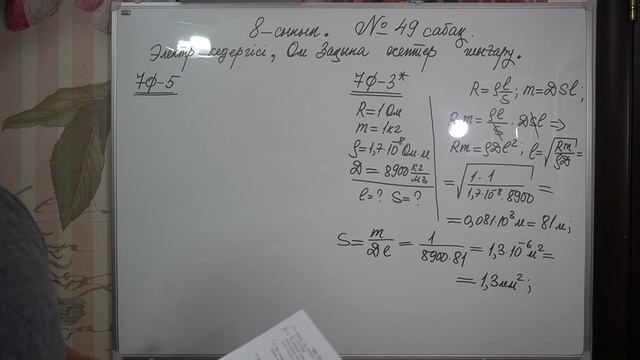 8-сынып. № 49 сабақ.
Электр кедергісі, Ом Заңына есептер шығару.
7Ф-5
7Ф-3*
R=1 Ом
m=1кг
ρ=1,7·10⁻⁸ Ом·м
D=8900 кг/м3
l=? S=?
R=ρl/S; m=DSl;
R·m=ρl/S·DSl ⇒
Rm=ρDl²; l=√(Rm/ρD)=
=√(1·1/1,7·10⁻⁸·8900)=
=0,081·10³м=81м;
S=m/Dl=1/8900·81=1,3·10⁻⁶м²=
=1,3мм²;